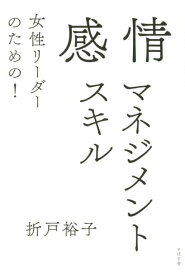 女性リーダー
のための！
感情
マネジメント
スキル
折戸裕子